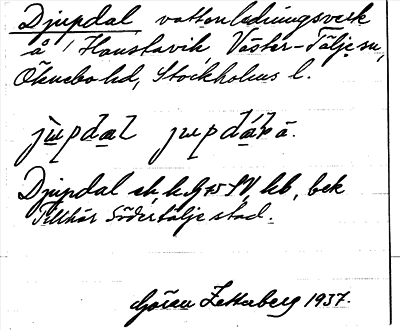 Djupdal vattenledningsverk
å Hanstavik, Väster-Tälje sn,
Öknebo hd, Stockholms l.
jupdal
Djupdal ek, bek
Tillhör Södertälje stad.
Göran Zetterberg 1937.